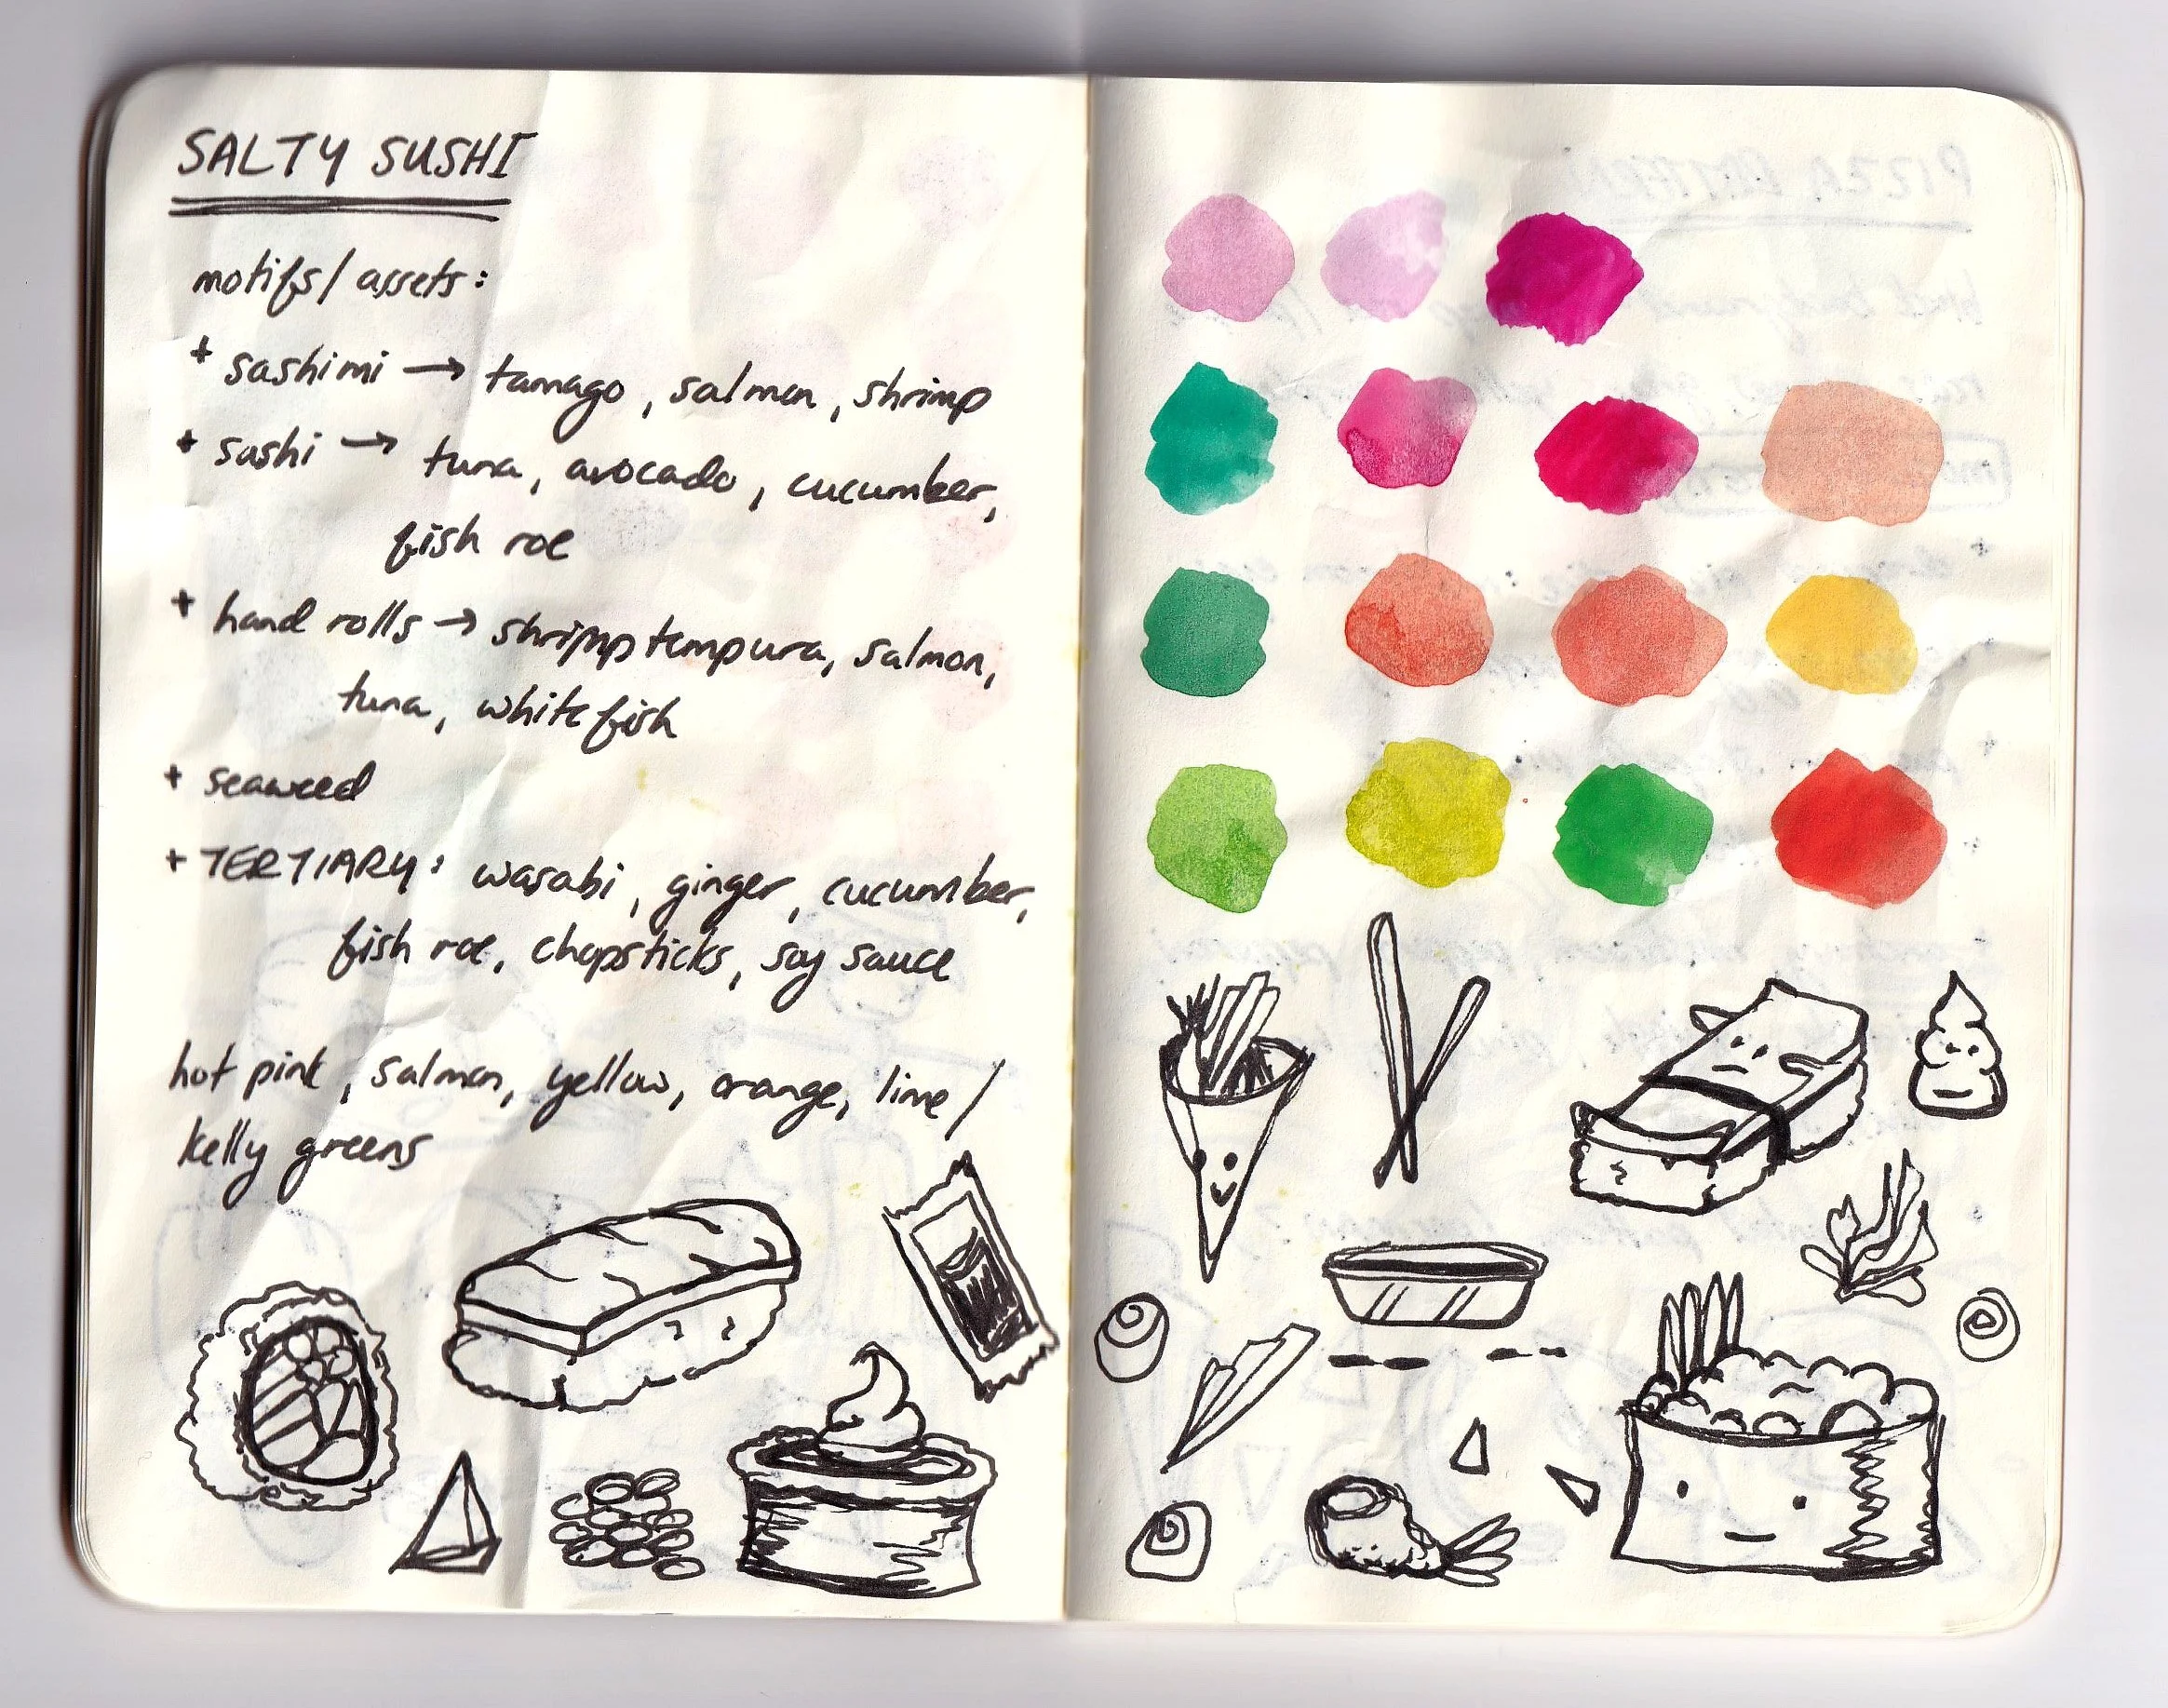 SALTY SUSHI
motifs/assets:
+ sashimi → tamago, salmon, shrimp
+ sushi → tuna, avocado, cucumber,
fish roe
+ hand rolls → shrimp tempura, salmon,
tuna, whitefish
+ seaweed
+ TERTIARY: wasabi, ginger, cucumber,
fish roe, chopsticks, soy sauce
hot pink, salmon, yellow, orange, lime/
kelly greens